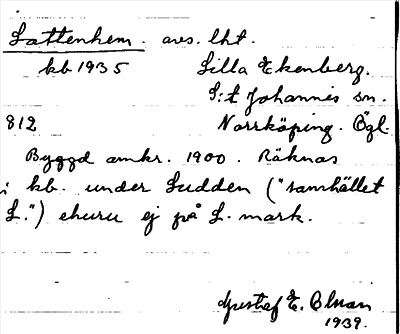 Lattenhem. avs. lht.
kb 1935 Lilla Ekenberg.
S:t Johannis sn.
812 Norrköping. Ögl.
Byggd omkr. 1900. Räknas
i kb. under Sudden ("samhället
L.") ehuru ej på L. mark.
Gustaf E. Olsson
1939.